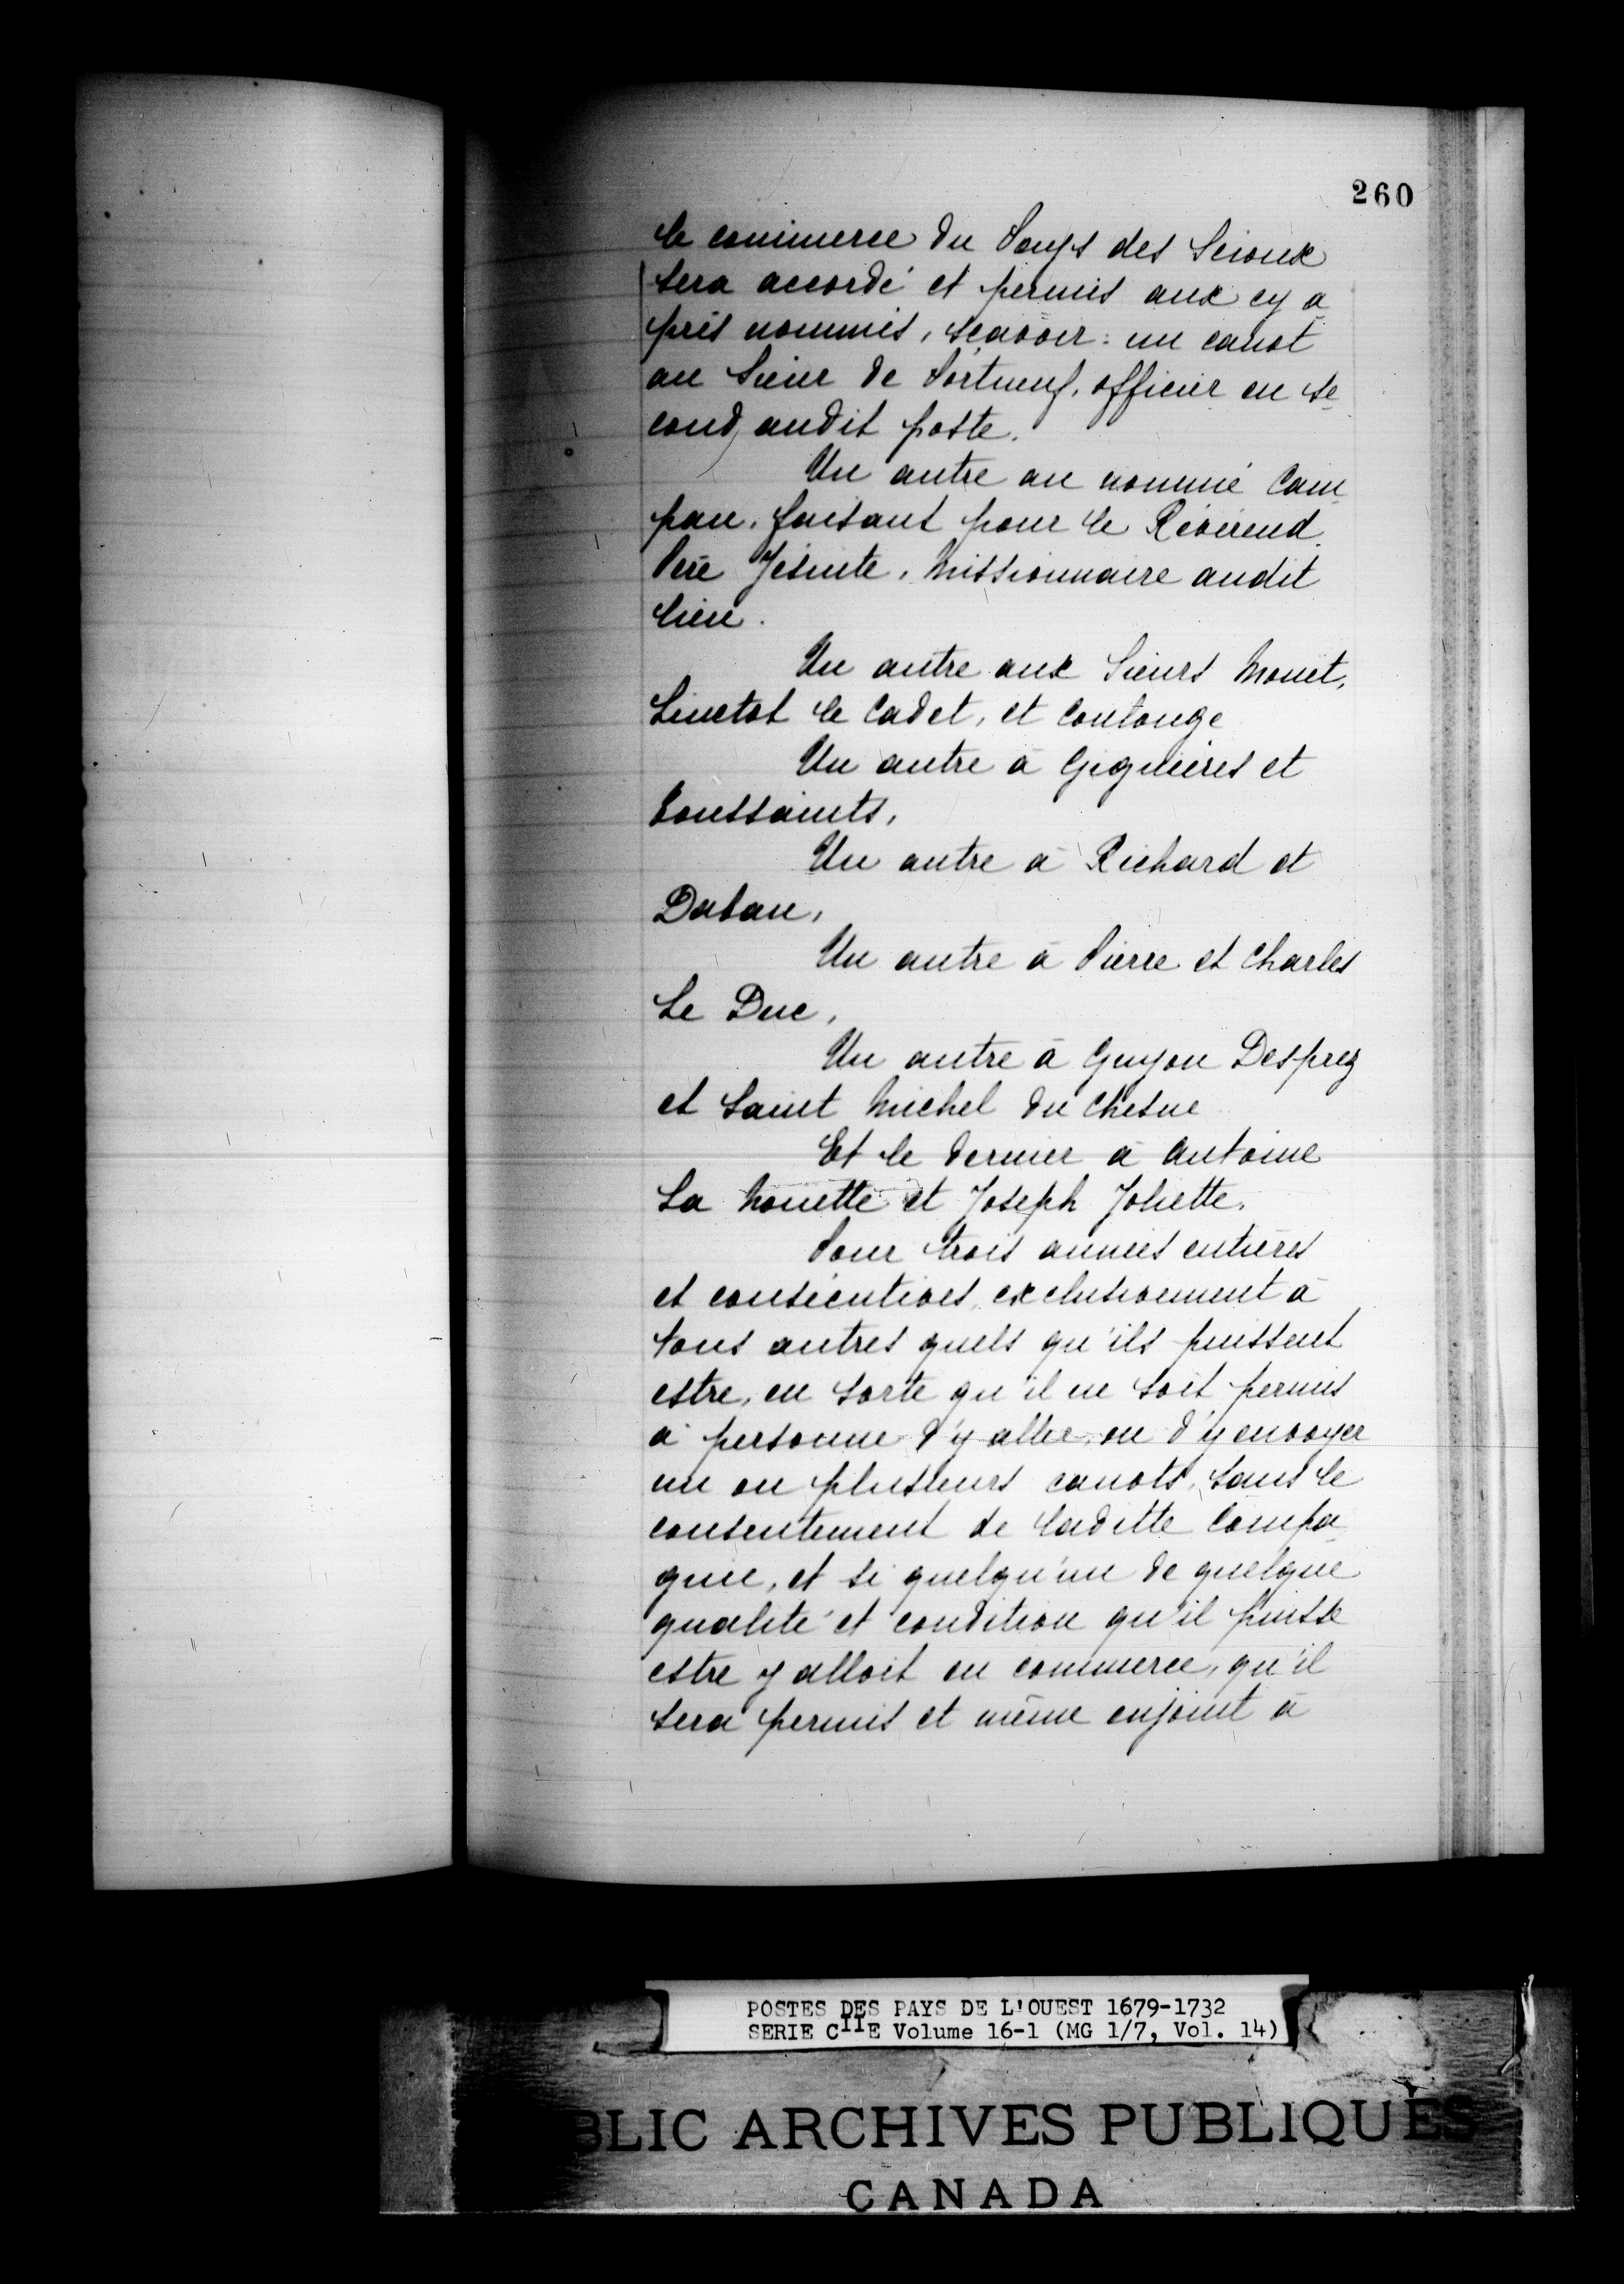 260
le commerce du Pays des Scioux
sera accordé et permis aux cy a-
près nommés, scavoir: un canot
au Sieur de Portneuf, officier en se-
cond audit poste.
Un autre au nommé Cam-
pau, faisant pour le Révérend
Père Jésuite, missionnaire audit
lieu.
Un autre aux Sieurs Mouet,
Linctot le Cadet, et Coulonge
Un autre à Gignières et
Toussaints,
Un autre à Richard et
Un autre à Pierre et Charles
Le Duc,
Un autre à Guyon Desprez
et Saint Michel du Chesne
Et le dernier à Antoine
La Mouette et Joseph Joliette.
Pour trois années entières
et consécutives exclusivement à
tous autres quels qu'ils puissent
estre, en sorte qu'il ne soit permis
à personne d'y aller, ou d'y envoyer
un ou plusieurs canots, sans le
consentement de laditte Compa-
gnie, et si quelqu'un de quelque
qualité et condition qu'il puisse
estre y alloit en commerce, qu'il
sera permis et même enjoint à
POSTES DES PAYS DE L'OUEST 1679-1732
SERIE CIIE Volume 16-1 (MG 1/7, Vol. 14)
BLIC ARCHIVES PUBLIQUES
CANADA